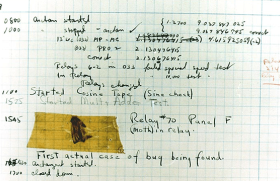 0800 Antan started
1000 " stopped - antan ✓
13" UC (032) MP-MC
033 PRO 2 2.130476415
correct 2.130676415
Relays 6-2 in 033 failed special speed test
in Relay
Relays changed
1100 Started Cosine Tape (Sine check)
1525 Started Multi Adder Test.
1545 Relay #70 Panel F
(moth) in relay.
First actual case of bug being found.
antangent started.
1700 closed down.